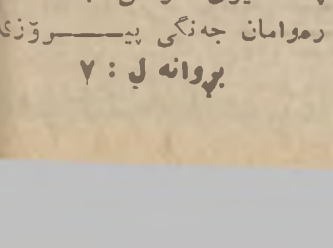 رەوامان جەنگی پیـــــرۆزی
بڕوانە ل : ٧